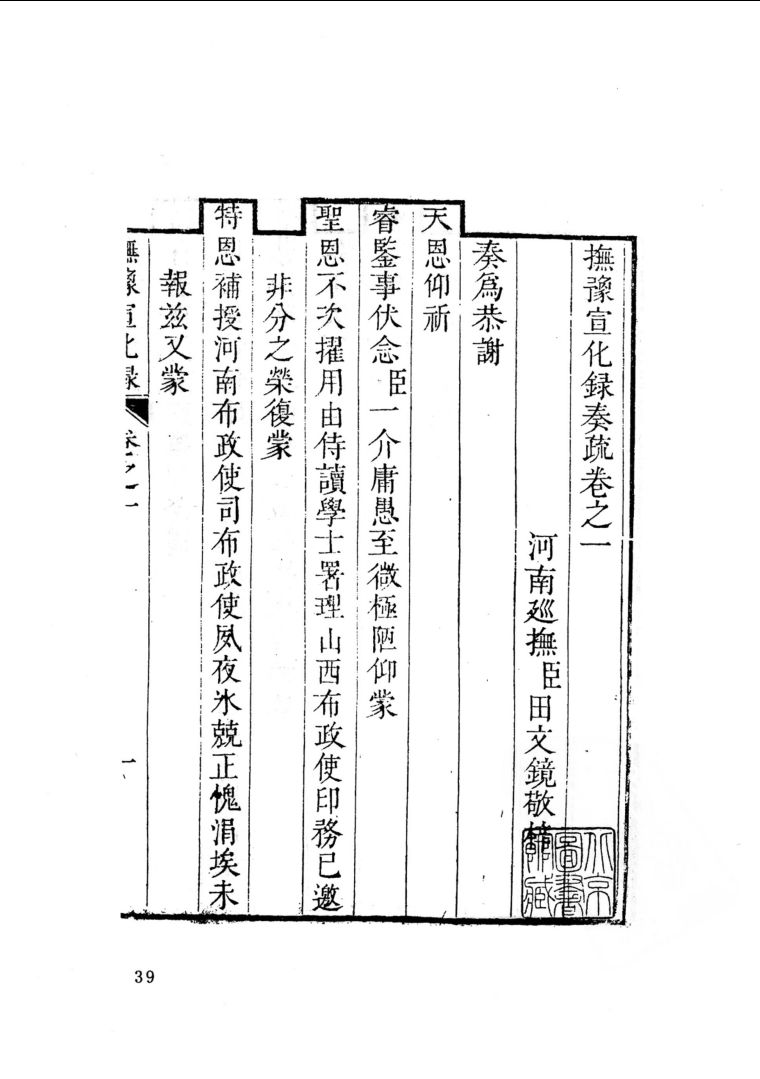 撫豫宣化録奏疏卷之一
河南廵撫臣田文鏡敬
奏爲恭謝
天恩仰祈
睿鑒事伏念臣一介庸愚至微極陋仰蒙
聖恩不次擢用由侍讀學士署理山西布政使印務已邀
非分之榮復蒙
特恩補授河南布政使司布政使夙夜氷兢正愧涓埃未
報兹又蒙
撫豫宣化録 卷之一 一
北京圖書館藏
39